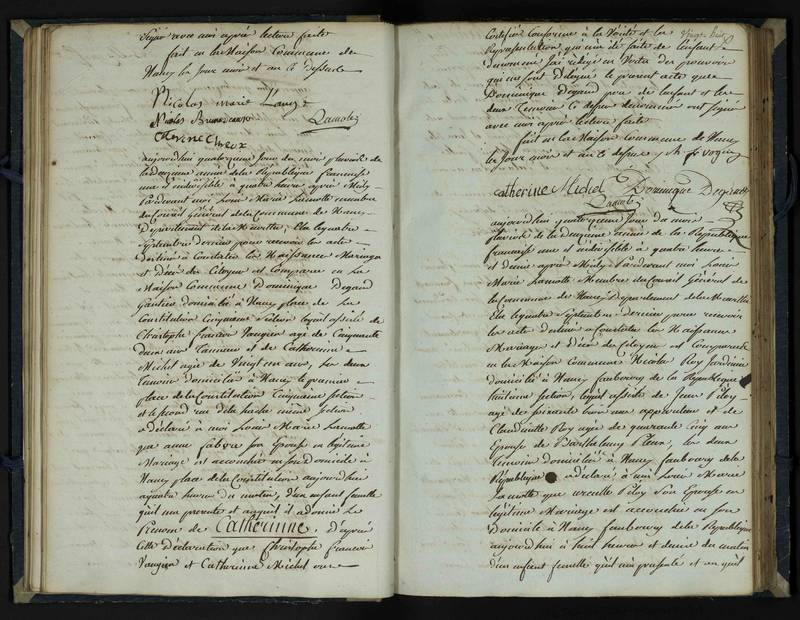 Signé avec moi après lecture faite
fait en la Maison Commune de
Nancy les jour mois et an ci dessus
Nicolas marie
Nicolas
Lamotte
Catherine
aujourdhui quatorzieme jour du mois pluviose de
la deuxieme année de la Republique francaise
une et indivisible à quatre heures après Midy
Pardevant moi Louis Marie Lamotte membre
du Conseil Général de la Commune de Nancy
Département de la Meurthe, Elu le quatre
Septembre dernier pour recevoir les actes
destinés à Constater les Naissances Mariages
et Décès des Citoyens est Comparu en la
Maison Commune Dominique Degand
Gantier domicilié à Nancy place de la
Constitution Cinquieme Section lequel assisté de
Christophe francois Vaugien agé de Cinquante
deux ans Tanneur et de Catherinne
Michel agée de Vingt un ans, les deux
temoins domiciliés à Nancy le premier
place de la Constitution Cinquieme Section
et le second rue de la hache même Section
a déclaré à moi Louis Marie Lamotte
que anne fabvre son Epouse en légitime
Mariage est accouchée en son Domicile à
Nancy place de la Constitution aujourdhui
à quatre heures du matin, d'un enfant femelle
qu'il me presente et auquel il a donné le
Prenom de Catherinne, d'après
cette déclaration que Christophe francois
Vaugien et Catherinne Michel ont
Certifié Conforme à la Vérité et la
Représentation qui m'a été faite de l'enfant
denommé j'ai redigé en Vertu des pouvoirs
qui me sont délégués le present acte que
Dominique Degand pere de l'enfant et les
deux Temoins ci dessus denommés ont signé
avec moi après lecture faite
fait en la Maison Commune de Nancy
les jour mois et an ci dessus
Catherine Michel Dominique Degand
Lamotte
aujourdhui quatorzieme jour du mois
pluviose de la deuxieme année de la Republique
francaise une et indivisible à quatre heures
et demie après Midy Pardevant moi Louis
Marie Lamotte Membre du Conseil Général de
la Commune de Nancy Departement de la Meurthe
Elu le quatre Septembre dernier pour recevoir
les actes destinés à Constater les Naissances
Mariages et Décès des Citoyens est Comparu
en la Maison Commune Nicolas Ploy Jardinier
domicilié à Nancy faubourg de la République
huitieme Section, lequel assisté de Jean Ploy
agé de soixante trois ans et de
Claudinette Ploy agée de quarante Cinq ans
Epouse de Barthelemy les deux
temoins domiciliés à Nancy faubourg de la
République a déclaré à moi Louis Marie
Lamotte que Ploy Son Epouse en
légitime Mariage est accouchée en son
Domicile à Nancy faubourg de la Republique
aujourdhui à huit heures et demie du matin
d'un enfant femelle qu'il m'a presenté et auquel